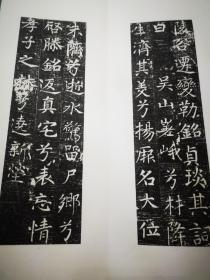 陵谷遷變勒銘貞琰其詞
曰 吳山峩峨兮降
生濟其美兮楊厥名大位
未濟兮逝水驚留尸鄉兮
啓滕銘返真宅兮表忘情
孝子之兮達新塋